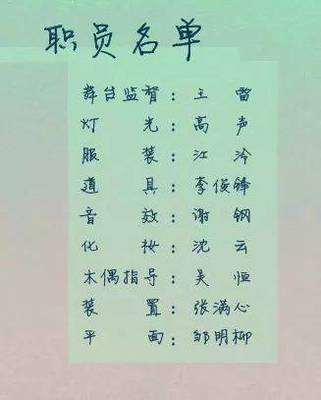 职员名单
舞台监督：王雷
灯光：高声
服装：江泠
道具：李俊锋
音效：谢钢
化妆：沈云
木偶指导：吴恒
装置：张满心
平面：邹明柳